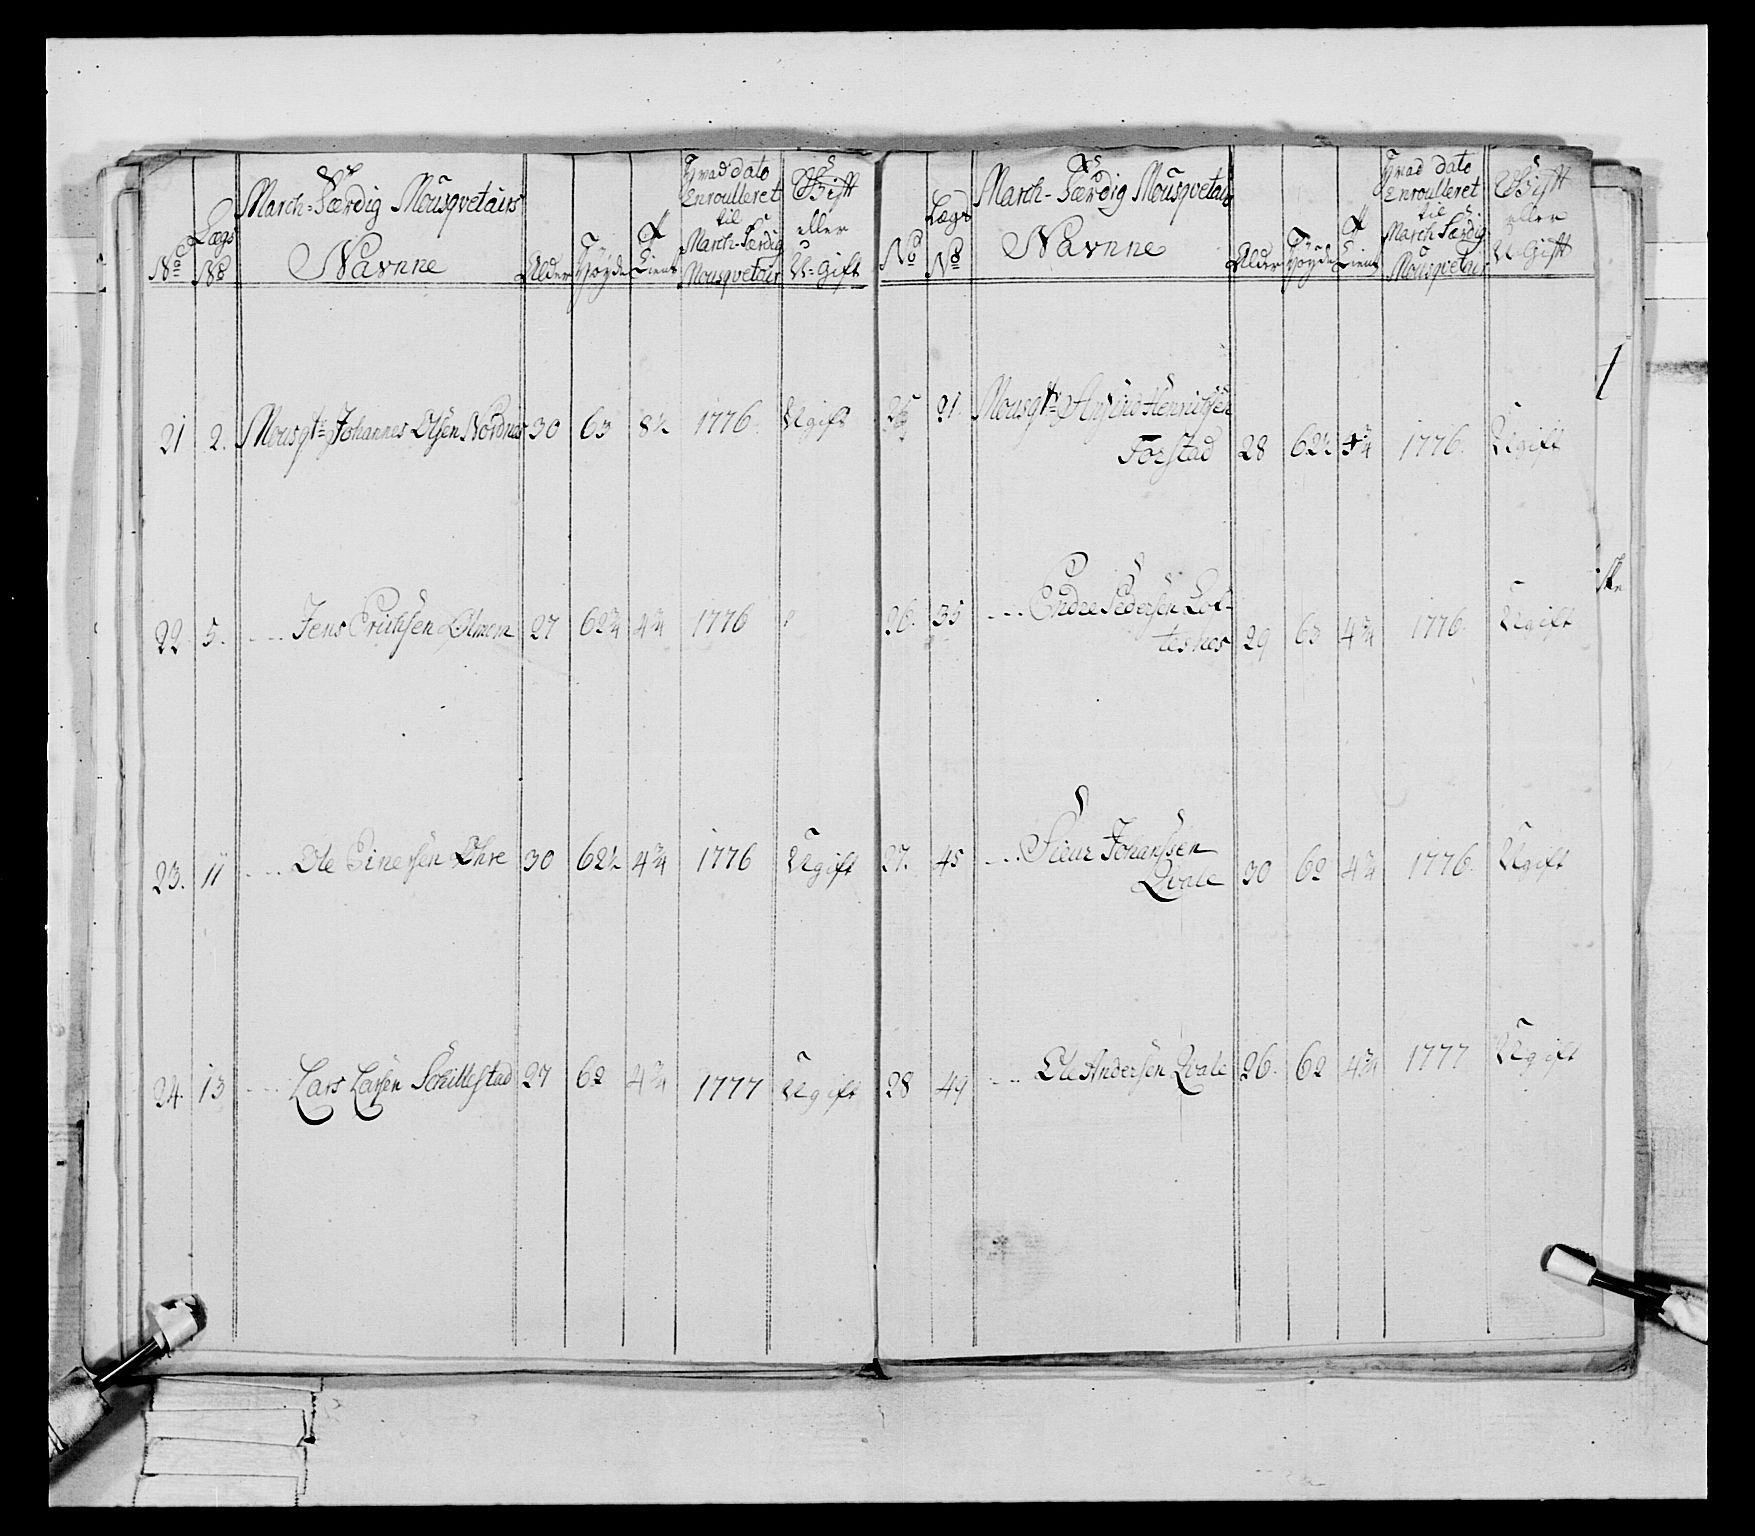 No
Lægs No
March-Færdig Mousqvetairs
Navnne
Alder
Høyde
Tieni
Hvad dato
Enroulleret
til
March-Færdig
Mousqvetair
Gift
eller
U-Gift
21 2. Mousqtr Johannes Olsen Nordnes 30 63 8½ 1776. Ugift
22 5. Jens Erichsen Ølmem 27 62¾ 4¾ 1776
23. 11 Ole Einersen Øhre 30 62½ 4¾ 1776 Ugift
24. 13 Lars Larsen Schillestad 27 62 4¾ 1777 Ugift
No
Lægs No
March-Færdig Mousqvetair
Navnne
Alder
Høyde
Tieni
Hvad dato
Enroulleret
til
March Færdig
Mousqvetair
Gift
eller
U-Gift
25 21. Mousqtr Henrichsen
Forstad 28 62½ 4¾ 1776. Ugift
26. 35 Endre Pedersen Lof-
tesnes 29 63 4¾ 1776. Ugift
27. 45 Sieur Johanssen
Qvale 30 62 4¾ 1776. Ugift
28 49 Ole Andersen Qvale 26. 62 4¾ 1777 Ugift